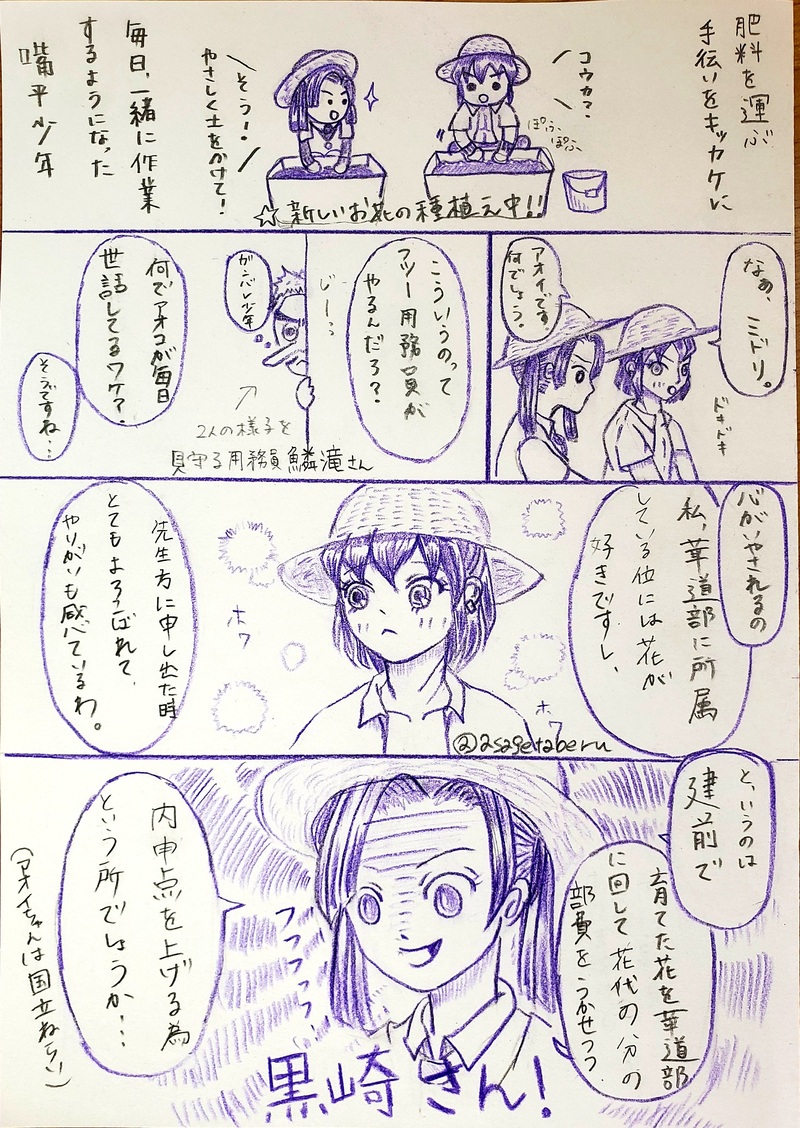 肥料を運ぶ
手伝いをキッカケに
コウカ?
ぽふ、
ぽふ、
そう!
やさしく土をかけて!
毎日、一緒に作業
するようになった
嘴平少年
☆新しいお花の種植え中!!
なぁ、ミドリ。
アオイです
何でしょう。
ドキドキ
こういうのって
フツー用務員が
やるんだろ?
じーっ
ガンバレ少年
2人の様子を
見守る用務員鱗滝さん
何でアオコが毎日
世話してるワケ?
そうですね…
心がいやされるの
私、華道部に所属
している位には花が
好きですし、
ホワ
ホワ
先生方に申し出た時
とてもよろこばれて、
やりがいも感べているわ。
@asagetaberu
と、いうのは
建前で
育てた花を華道部
に回して花代の分の
部費をうかせつつ
フフフフフ…
内申点を上げる為
という所でしょうか…
(アオイちゃんは国立ねらい)
黒崎さん!